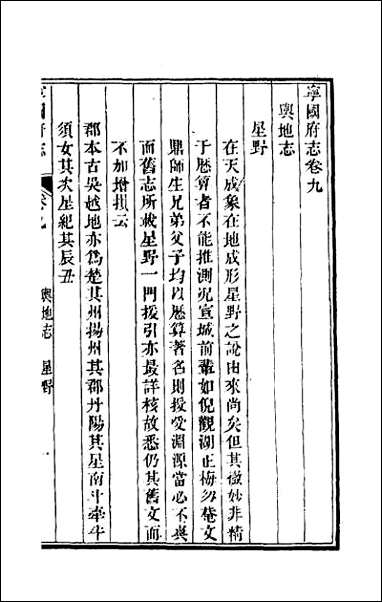 寧國府志卷九
輿地志
星野
在天成象在地成形星野之說由來尚矣但其微妙非精
于歷算者不能推測況宣城前輩如倪觀湖正梅勿菴文
鼎師生兄弟父子均以歷算著名則授受淵源當必不爽
而舊志所載星野一門援引亦最詳核故悉仍其舊文而
不加增損云
郡本古吳越地亦爲楚其州揚州其郡丹陽其星南斗牽牛
須女其次星紀其辰丑
寧國府志 卷九 輿地志 星野